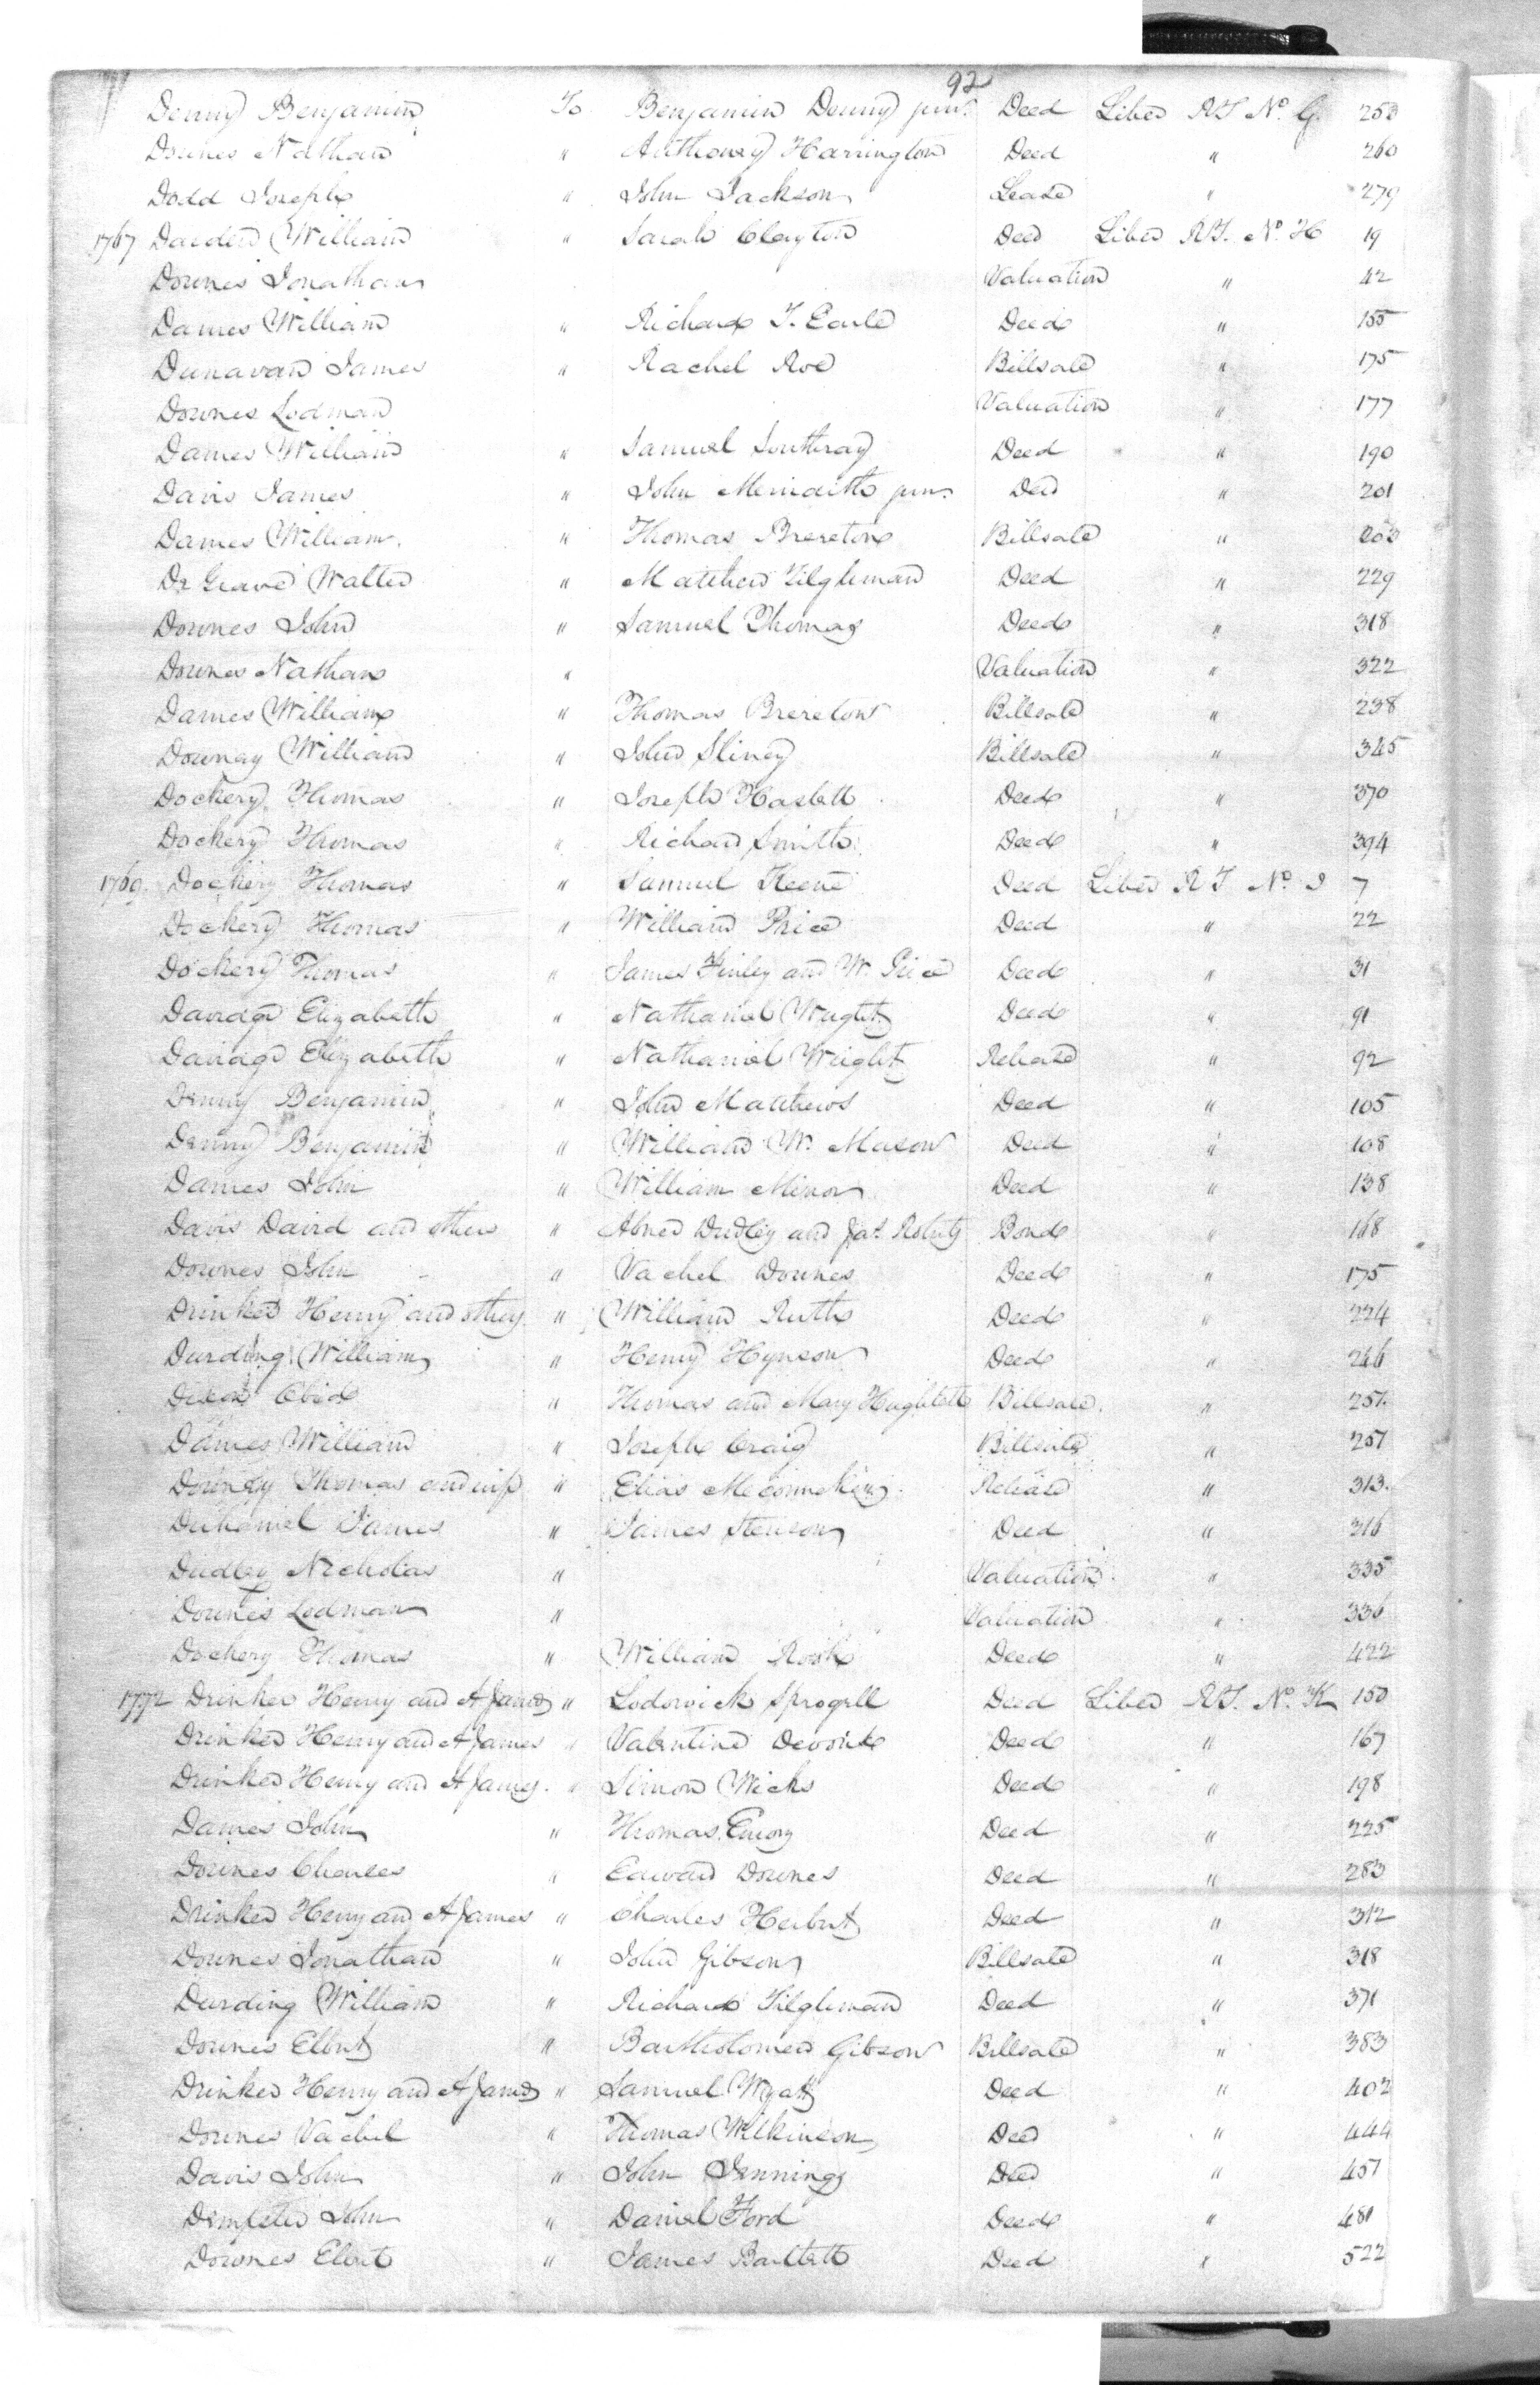 92
Denny Benjamin To Benjamin Denny junr. Deed Liber RT No. G. 253
Downes Nathan " Anthoney Harrington Deed " 260
Dodd Joseph " John Jackson Lease " 279
1767 Darden William " Sarah Clayton Deed Liber RT. No. H 19
Downes Jonathan Valuation " 42
Dames William " Richard T. Earle Deed " 155
Dunavan James " Rachel Roe Billsale " 175
Downes Lodman Valuation " 177
Dames William " Samuel Deed " 190
Davis James " John Meridith junr. Deed " 201
Dames William. " Thomas Brereton Billsale " 203
De Grave Walter " Matthew Tilghman Deed " 229
Downes John " Samuel Thomas Deed " 318
Downes Nathan " Valuation " 322
Dames William " Thomas Brereton Billsale " 238
Downey William " John Sliney Billsale " 345
Dockery Thomas " Joseph Haslett Deed " 370
Dockery Thomas " Richard Smith Deed " 394
1769. Dockery Thomas " Samuel Keene Deed Liber RT No. I 7
Dockery Thomas " William Price Deed " 22
Dockery Thomas " James Finley and W. Price Deed " 31
Davidge Elizabeth " Nathaniel Wright Deed " 91
Davidge Elizabeth " Nathaniel Wright Release " 92
Denny Benjamin " John Matthews Deed " 105
Denny Benjamin " William W. Mason Deed " 108
Dames John " William Minor Deed " 138
Davis David and others " Abner Dudley and Jas. Roberts Bond " 168
Downes John " Vachel Downes Deed " 175
Drinker Henry and others " William Ruth Deed " 224
Durding William " Henry Hynson Deed " 246
Obid " Thomas and Mary Billsale. " 251.
Dames William " Joseph Craig Billsale " 257
Downey Thomas and wife " Elias Release " 313.
Duhamel James " James Stenson Deed " 316
Dudley Nicholas " Valuation " 335
Downes Lodman " Valuation " 336
Dockery Thomas " William Deed " 422
1772 Drinker Henry and A James " Lodowick Sprogell Deed Liber RT. No. K 150
Drinker Henry and A James " Valentine Deed " 167
Drinker Henry and A James. " Simon Wicks Deed " 198
Dames John " Thomas Emory Deed " 225
Downes Charles " Edward Downes Deed " 283
Drinker Henry and A James " Charles Herbert Deed " 312
Downes Jonathan " John Gibson Billsale " 318
Durding William " Richard Tilghman Deed " 371
Downes Elbert " Bartholomew Gibson Billsale " 383
Drinker Henry and A James " Samuel Wyatt Deed " 402
Downes Vachel " Thomas Wilkinson Deed " 444
Davis John " John Jennings Deed " 457
Dempster John " Daniel Ford Deed " 481
Downes Elbert " James Bartlett Deed " 522